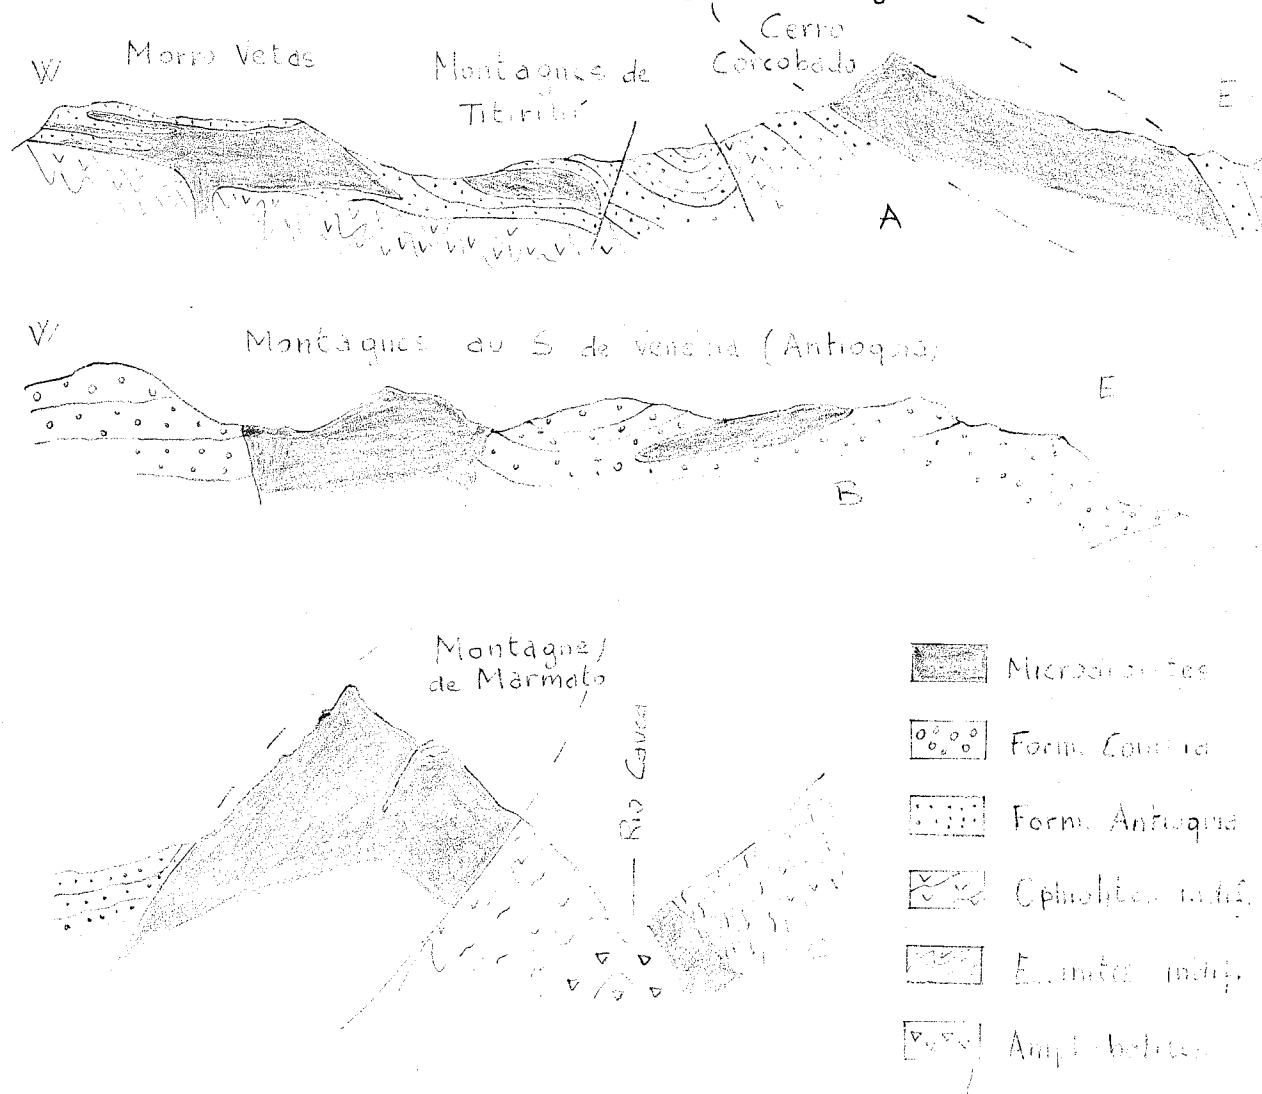 W
Morro Vetas
Montagnes de
Titiribí
Cerro
Corcobado
E
A
W
Montagnes au S de Venecia (Antioquia)
E
B
Montagne
de Marmato
Rio Cauca
Microdiorites
Form.
Form. Antioquia
Ophiolites indif.
indif.
Amphibolites